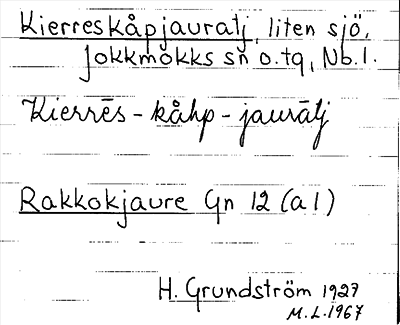 Kierreskåpjauratj, liten sjö,
Jokkmokks sn o. tg, Nb. l.
Kierrēs - kåhp - jaurātj
Rakkokjaure Gn 12 (a1)
H. Grundström 1927
M. L. 1967